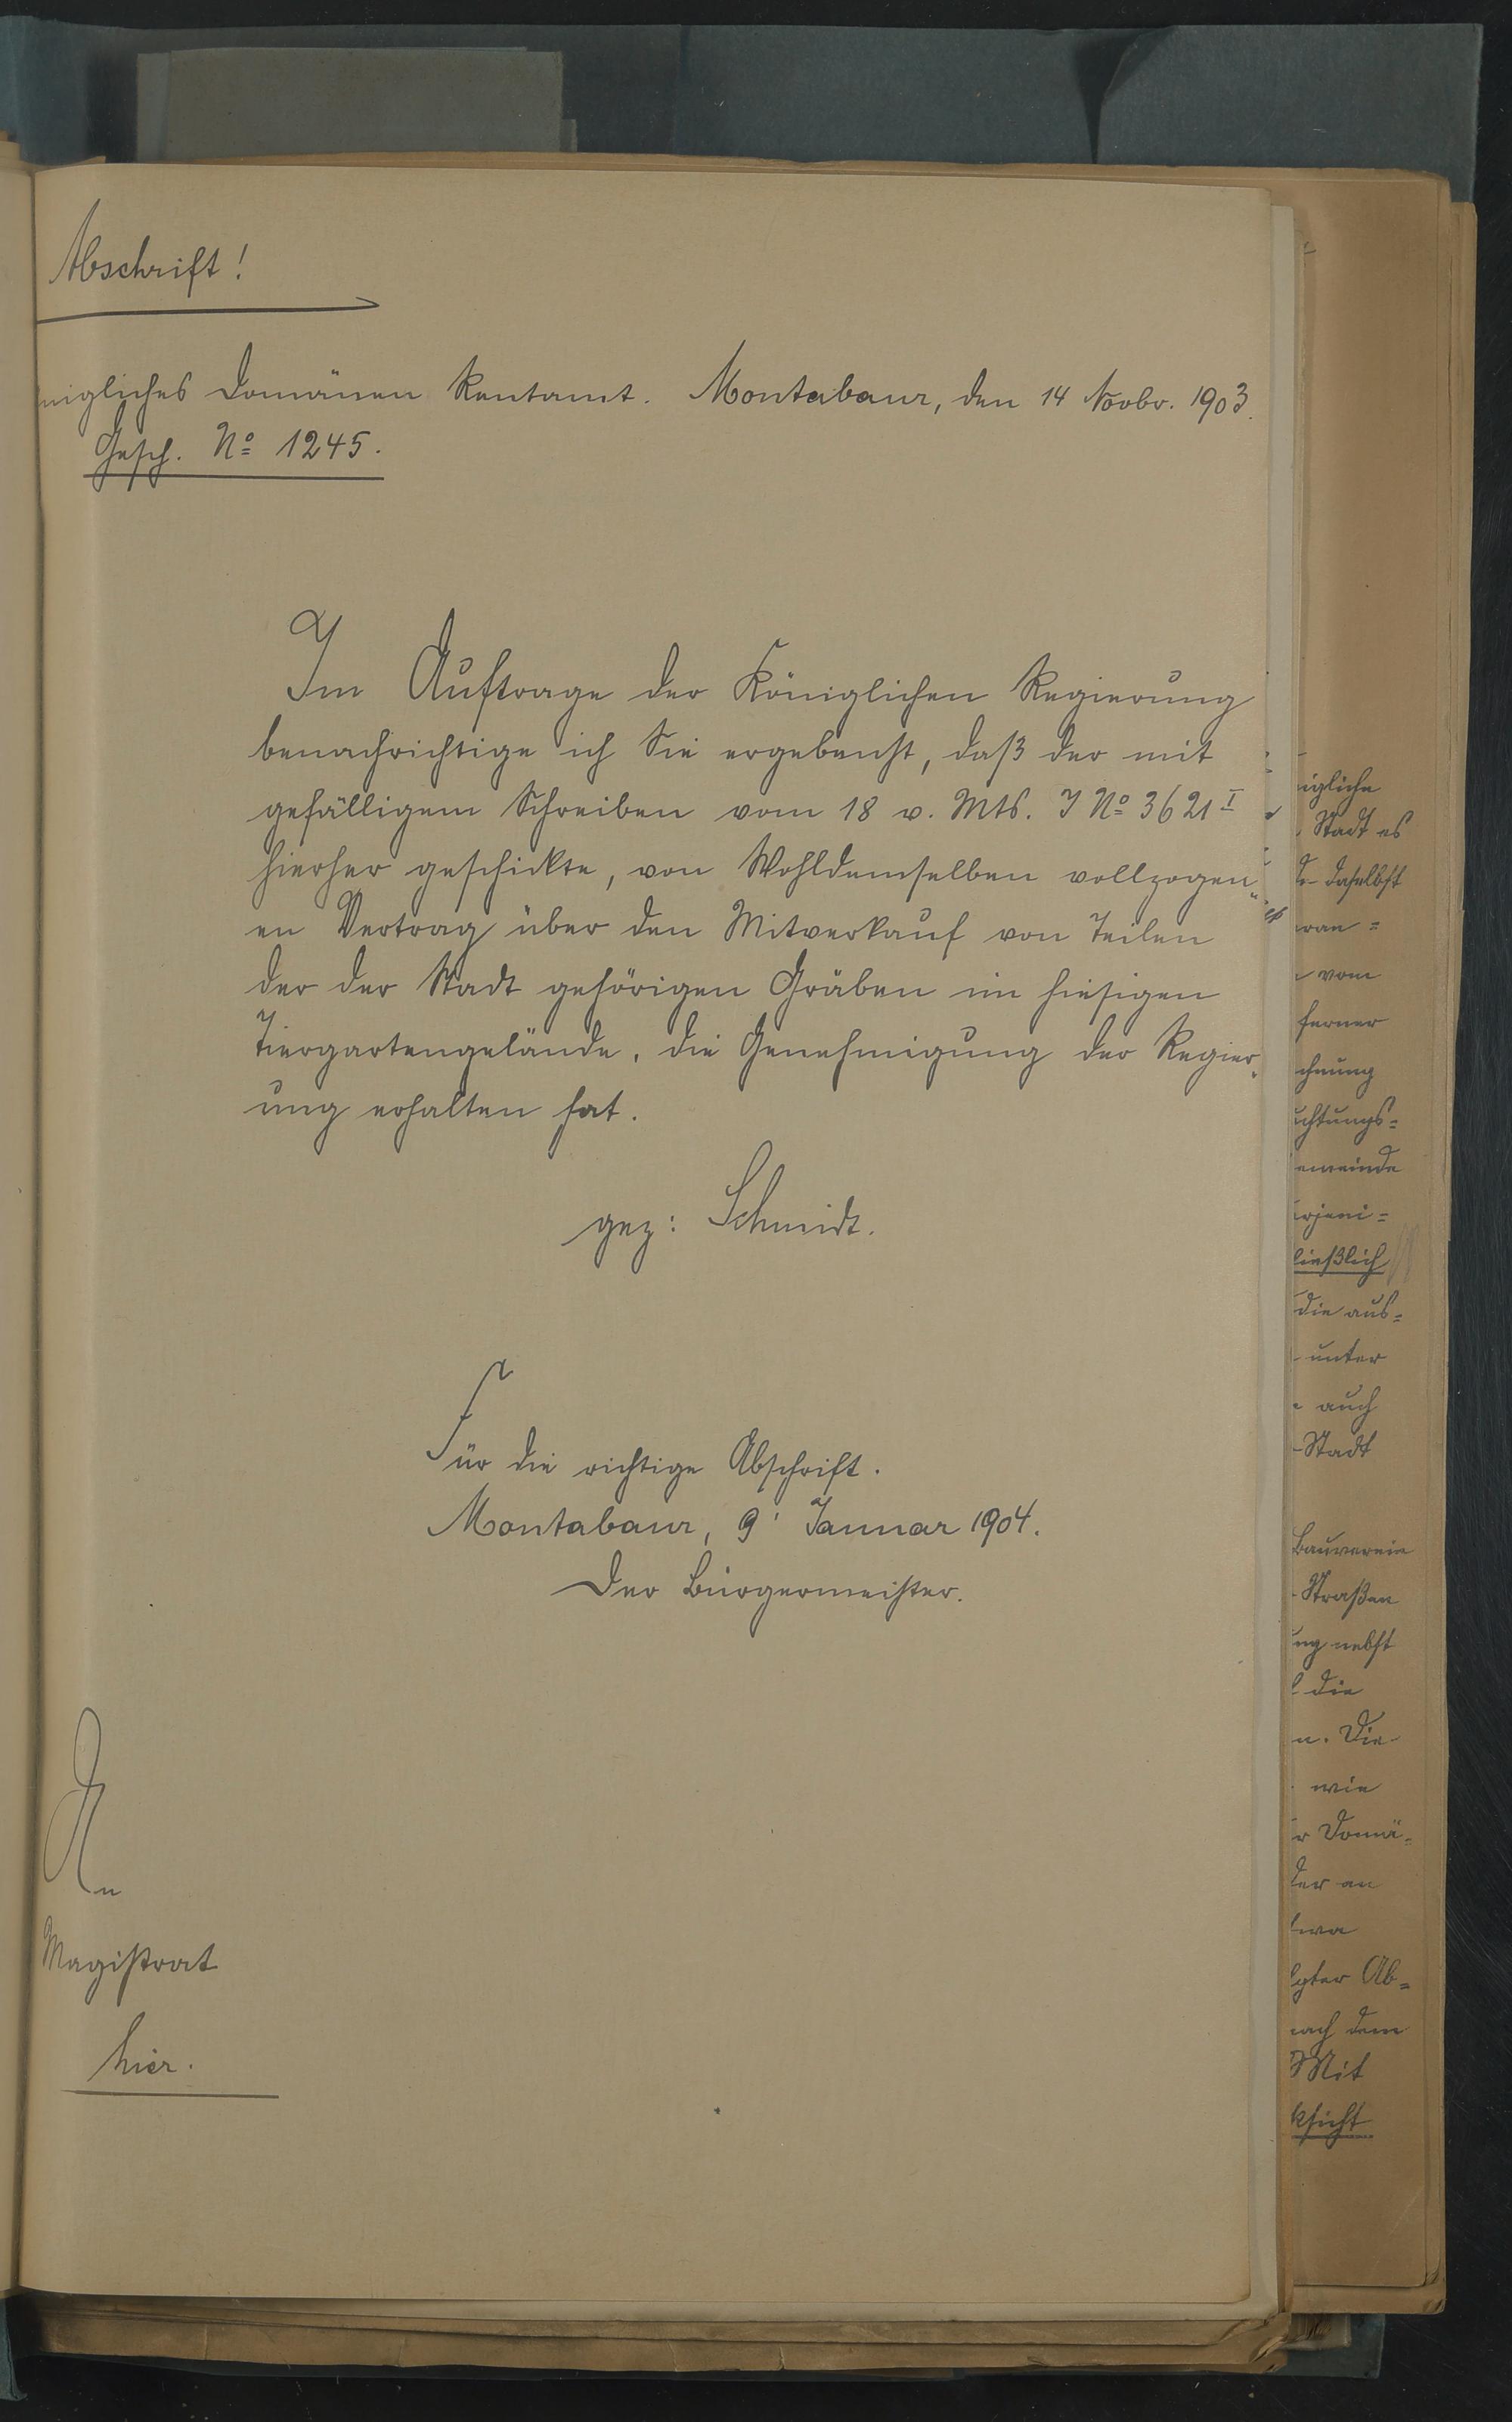 Abschrift!
nigliches Domänen Rentamt. Montabaur, den 14 Novbr. 1903.
Gesch. No 1245.
Im Auftrage der Königlichen Regierung
benachrichtige ich Sie ergebenst, daß der mit
gefälligem Schreiben vom 18 v. Mts. J No 3621 I
hierher geschickte, von Wohldemselben vollzogen„
en Vertrag über den Mitverkauf von Teilen
der der Stadt gehörigen Gräben im hiesigen
Tiergartengelände, die Genehmigung der Regier„
ung erhalten hat.
gez: Schmidt.
Für die richtige Abschrift.
Montabaur, 9' Januar 1904.
Der Bürgermeister.
An
Magistrat
hier.
igliche
Stadt es
daselbst
ran=
vom
ferner
chnung
chtungs=
emeinde
rjeni=
ließlich
die aus=
unter
auch
Stadt
Bauverein
Straßen
ng nebst
die
n. Die
wie
r Domä=
der an
twa
gter Ab=
nach dem
Mit
ksicht